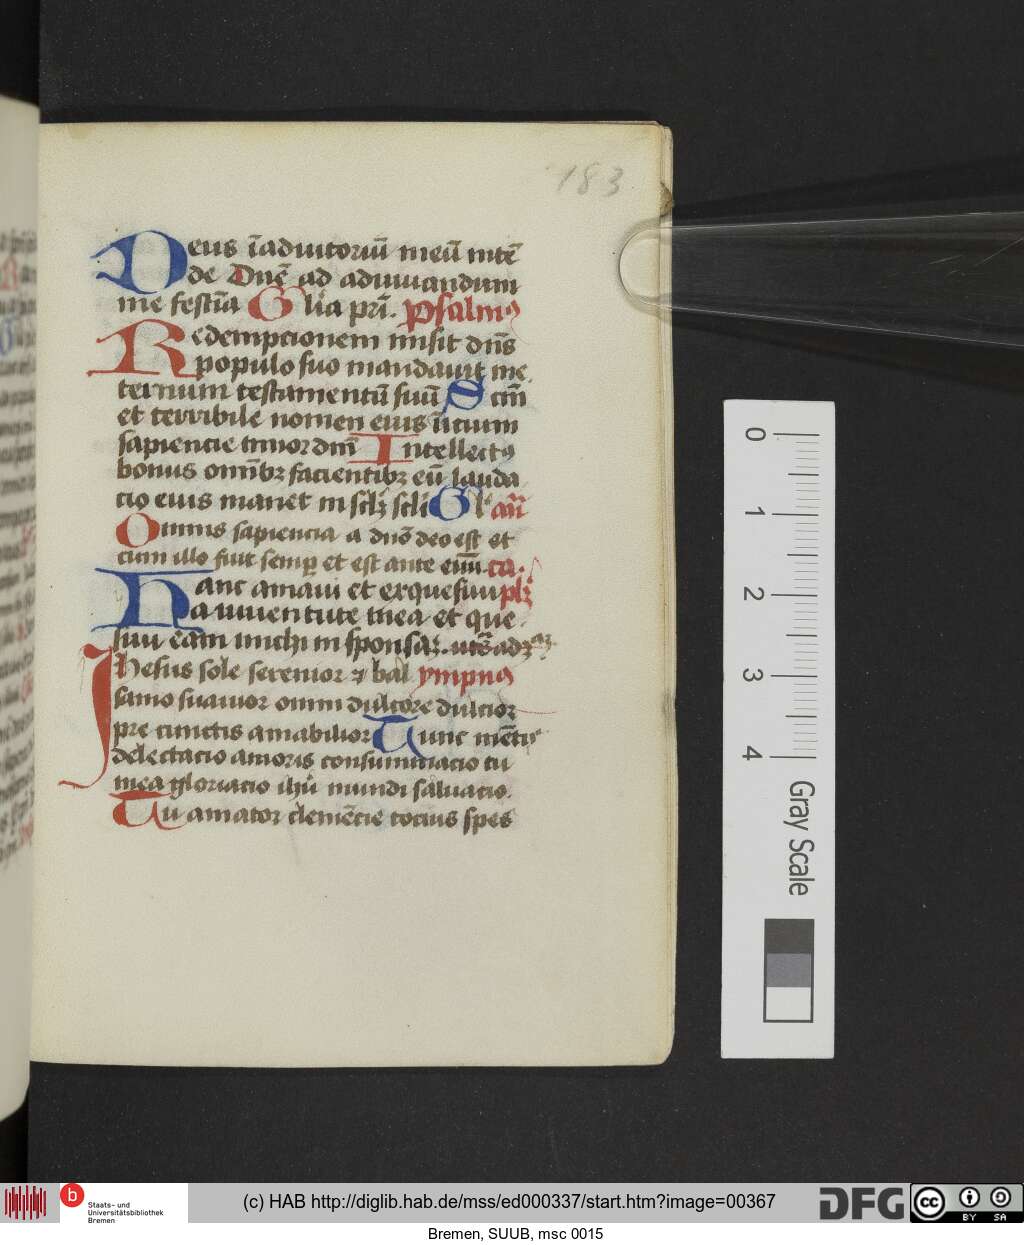 183
Deus ī adiutoriū meū intē
de Dn̄e ad adiuuandum
me festīa Gl̄ia pr̄i. Psalmꝰ
Redempcionem misit dn̄s
populo suo mandauit in e
ternum testamentū suū Scm̄
et terribile nomen eius īicium
sapiencie timor dn̄i Intellectꝰ
bonus omībꝫ facientibꝫ eū lauda
cio eius manet in sclꝫ scl̄i Gl' an̄
Omnis sapiencia a dn̄o deo est et
cum illo fuit semꝑ et est ante euū. ca.
Hanc amaui et exquesiui plꝫ
a iuuentute mea et que
siui eam michi in sponsaꝫ.
Jhesus sole serenior ⁊ bal ympnꝰ
samo suauior omni dulcore dulcior
pre cunctis amabilior Tunc mētis
delectacio amoris consummacio tu
mea gloriacio ihū mundi saluacio.
Tu amator clemēcie tocius spes
0
1
2
3
4
Gray Scale
b
Staats- und
Universitätsbibliothek
Bremen
(c) HAB http://diglib.hab.de/mss/ed000337/start.htm?image=00367
DFG
cc
BY SA
Bremen, SUUB, msc 0015